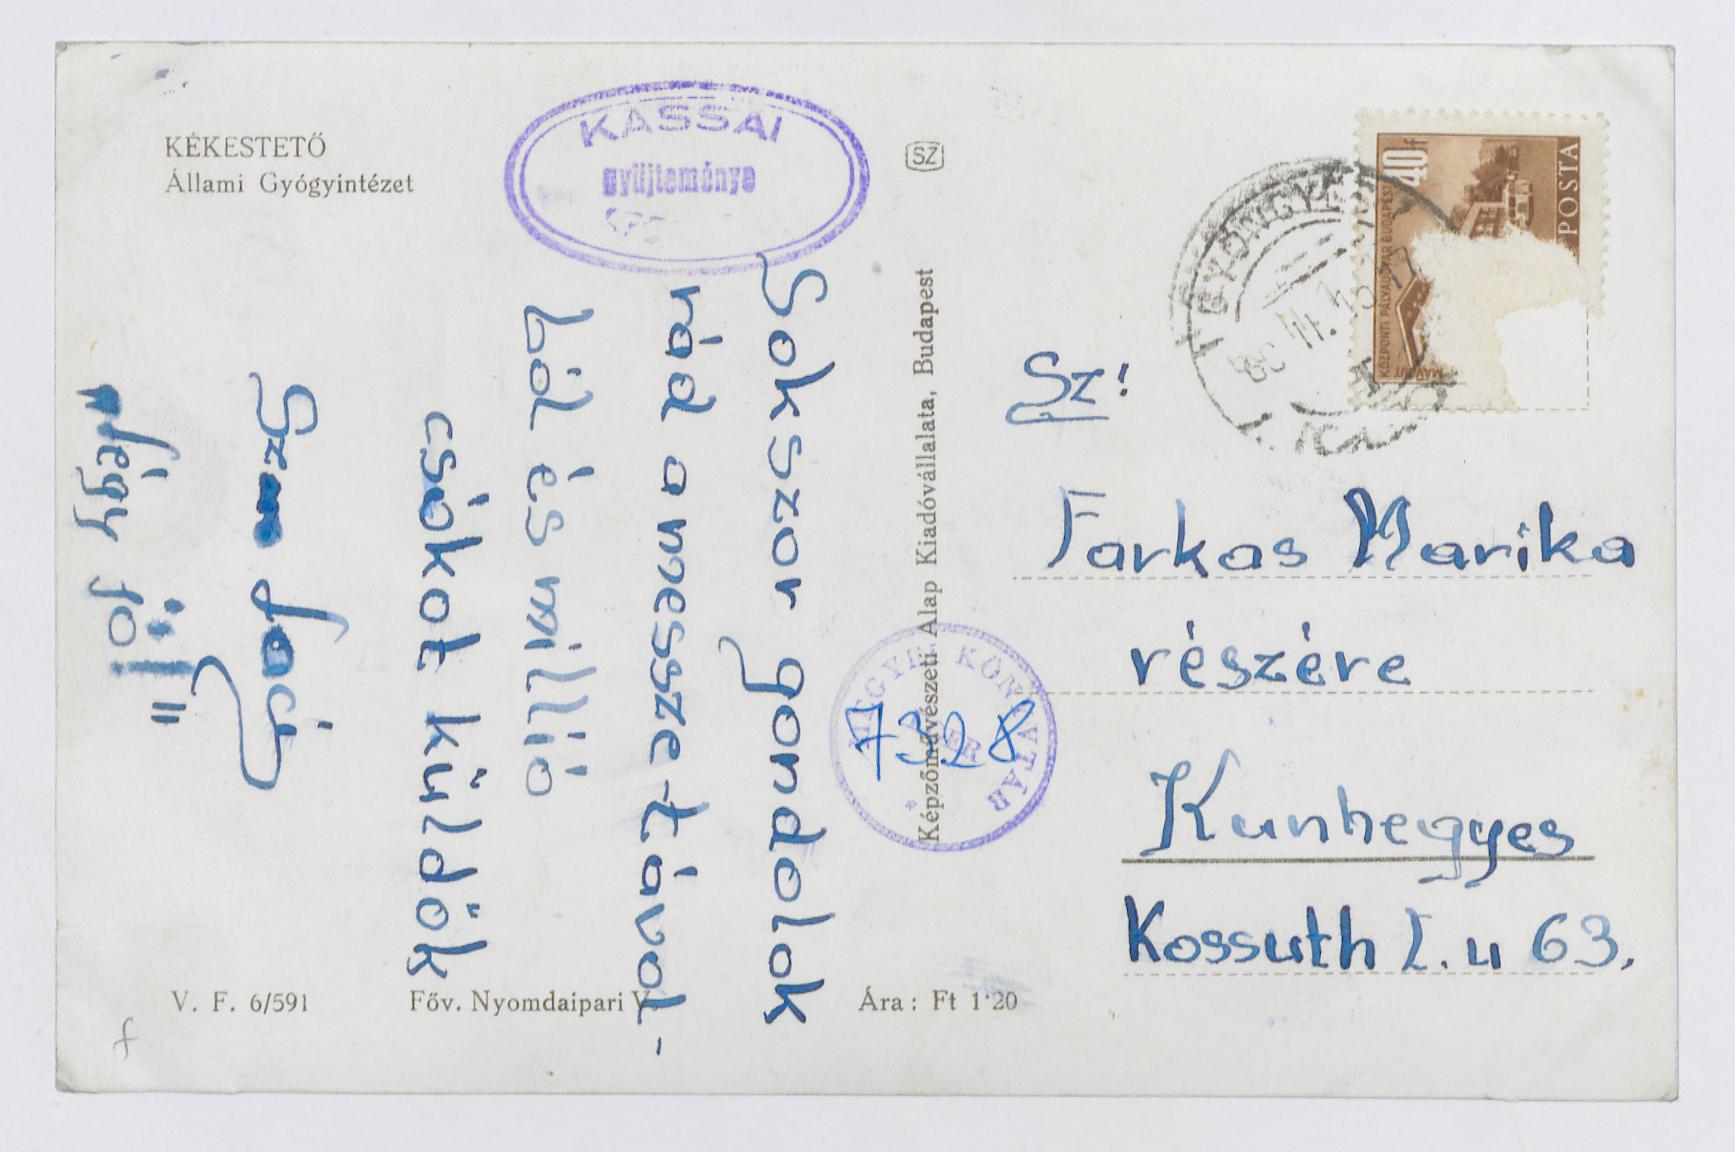 KÉKESTETŐ
Állami Gyógyintézet
KASSAI
gyűjteménye
SZ
40f
POSTA
KÖZPONTI PÁLYAUDVAR BUDAPEST
MÁVAUT
Sokszor gondolok
rád a messze távol-
ból és millió
csókot küldök
"Légy jó!"
Képzőművészeti Alap Kiadóvállalata, Budapest
KÖNYVTÁR
7328
Sz:
Farkas Marika
részére
Kunhegyes
Kossuth L. u 63.
V. F. 6/591
Főv. Nyomdaipari V.
Ára: Ft 1·20